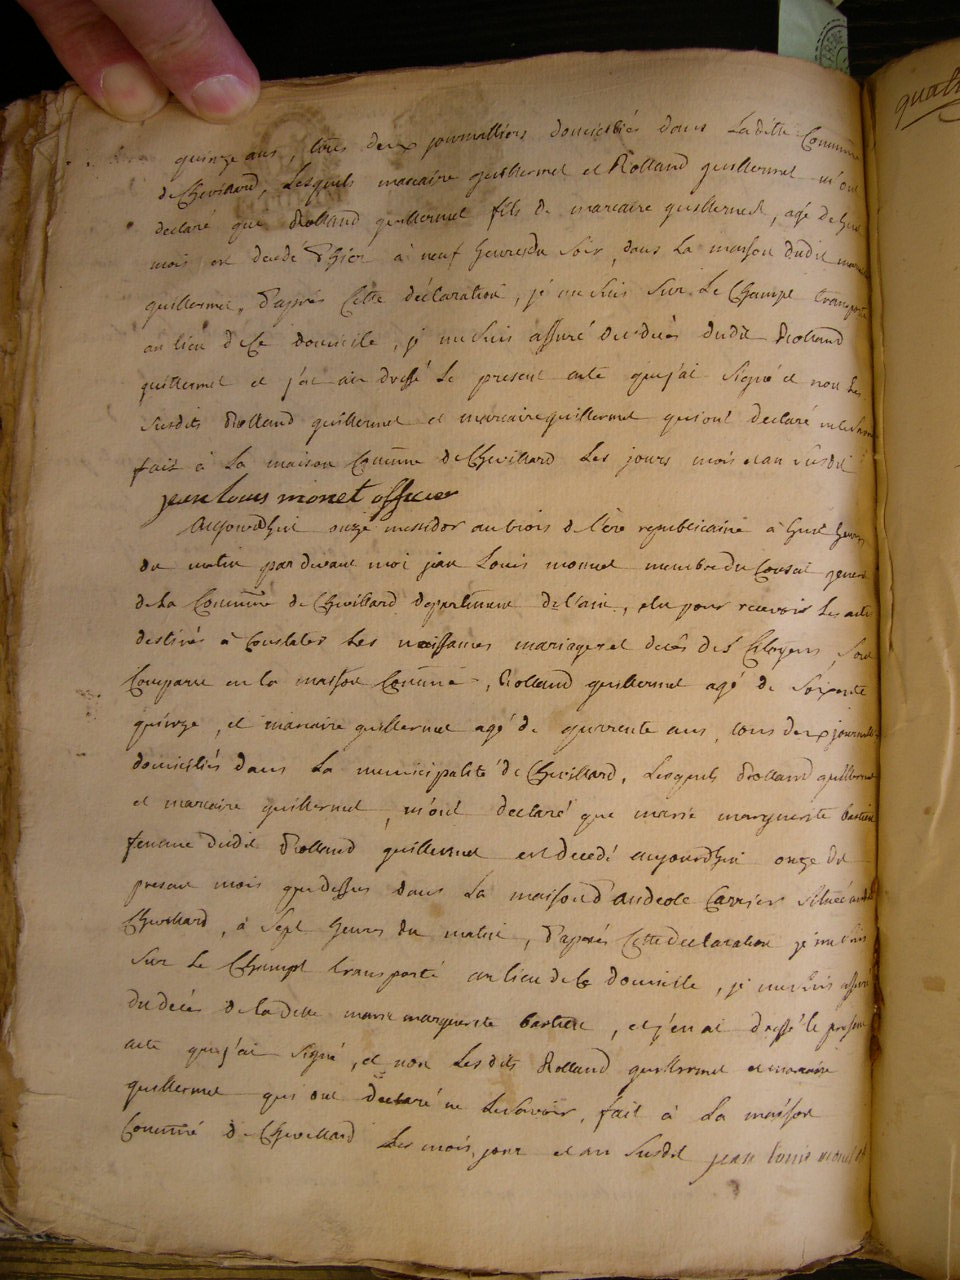 quat
quinze ans, tous deux journalliers domiciliés dans Laditte Commune
de Chevillard, Lesquels marcaire guillermet et Rolland guillermet m'ont
declaré que Rolland guillermet fils de marcaire guillermet, agé de huit
mois est decedé Hier à neuf heures du soir, dans La maison dudit
guillermet, d'aprés Cette déclaration, je me suis sur Le Champt transporté
au lieu de Ce domicile, je me suis assuré du decès dudit Rolland
guillermet et j'ai dressé Le present acte que j'ai signé et non Les
susdits Rolland guillermet et marcaire guillermet qui ont declaré ne le savoir
fait à La maison Comune de Chevillard Les jours mois et an susdit
jean louis monet officier
Aujourdhui onze messidor an trois de l'ère republicaine à huit heures
du matin par devant moi jean Louis monnet membre du Conseil general
de La Commune de Chevillard departement de l'ain, elu pour recevoir Les actes
destinés à Constater Les naissances mariages et decès des Citoyens, sont
Comparu en la maison Comune, Rolland guillermet agé de soixante
quinze, et marcaire guillermet agé de quarrente ans, tous deux journalliers
domiciliés dans La municipalité de Chevillard, Lesquels Rolland guillermet
et marcaire guillermet, m'ont declaré que marie marguerite
femme dudit Rolland guillermet est decedé aujourdhui onze du
present mois que dessus dans La maison d'andeole Carrier située
Chevillard, à sept heures du matin, d'aprés Cette declaration je me suis
sur Le Champt transporté au lieu de Ce domicile, je me suis assuré
du decès de laditte marie marguerite, et j'en ai dressé le present
acte que j'ai signé, et non Lesdits Rolland guillermet et marcaire
guillermet qui ont declaré ne Le savoir, fait à La maison
Comune de Chevillard Les mois, jour et an susdit jean louis monet